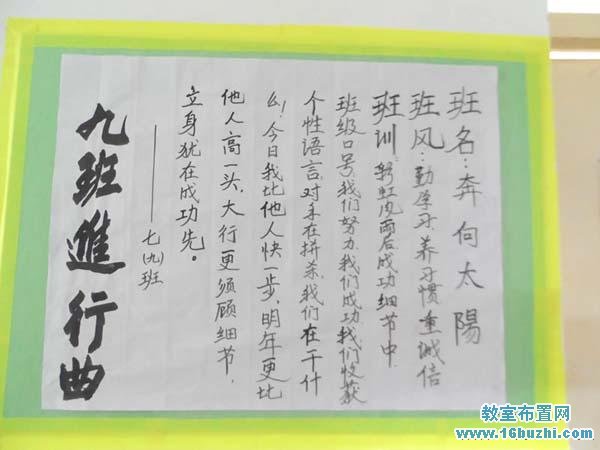 班名:奔向太陽
班风:勤学习、养习惯、重诚信
班训:彩虹风雨后,成功细节中
班级口号:我们努力,我们成功,我们收获
个性语言:对手在拼杀,我们在干什
么!今日我比他人快一步,明年更比
他人高一头,大行更须顾细节,
立身犹在成功先。
——七(九)班
九班進行曲
教室布置网
www.16buzhi.com